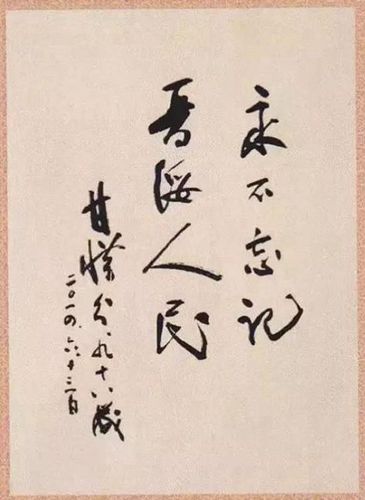 永不忘记
晋绥人民
甘惜分，九十八岁
二〇一四.六.十三日